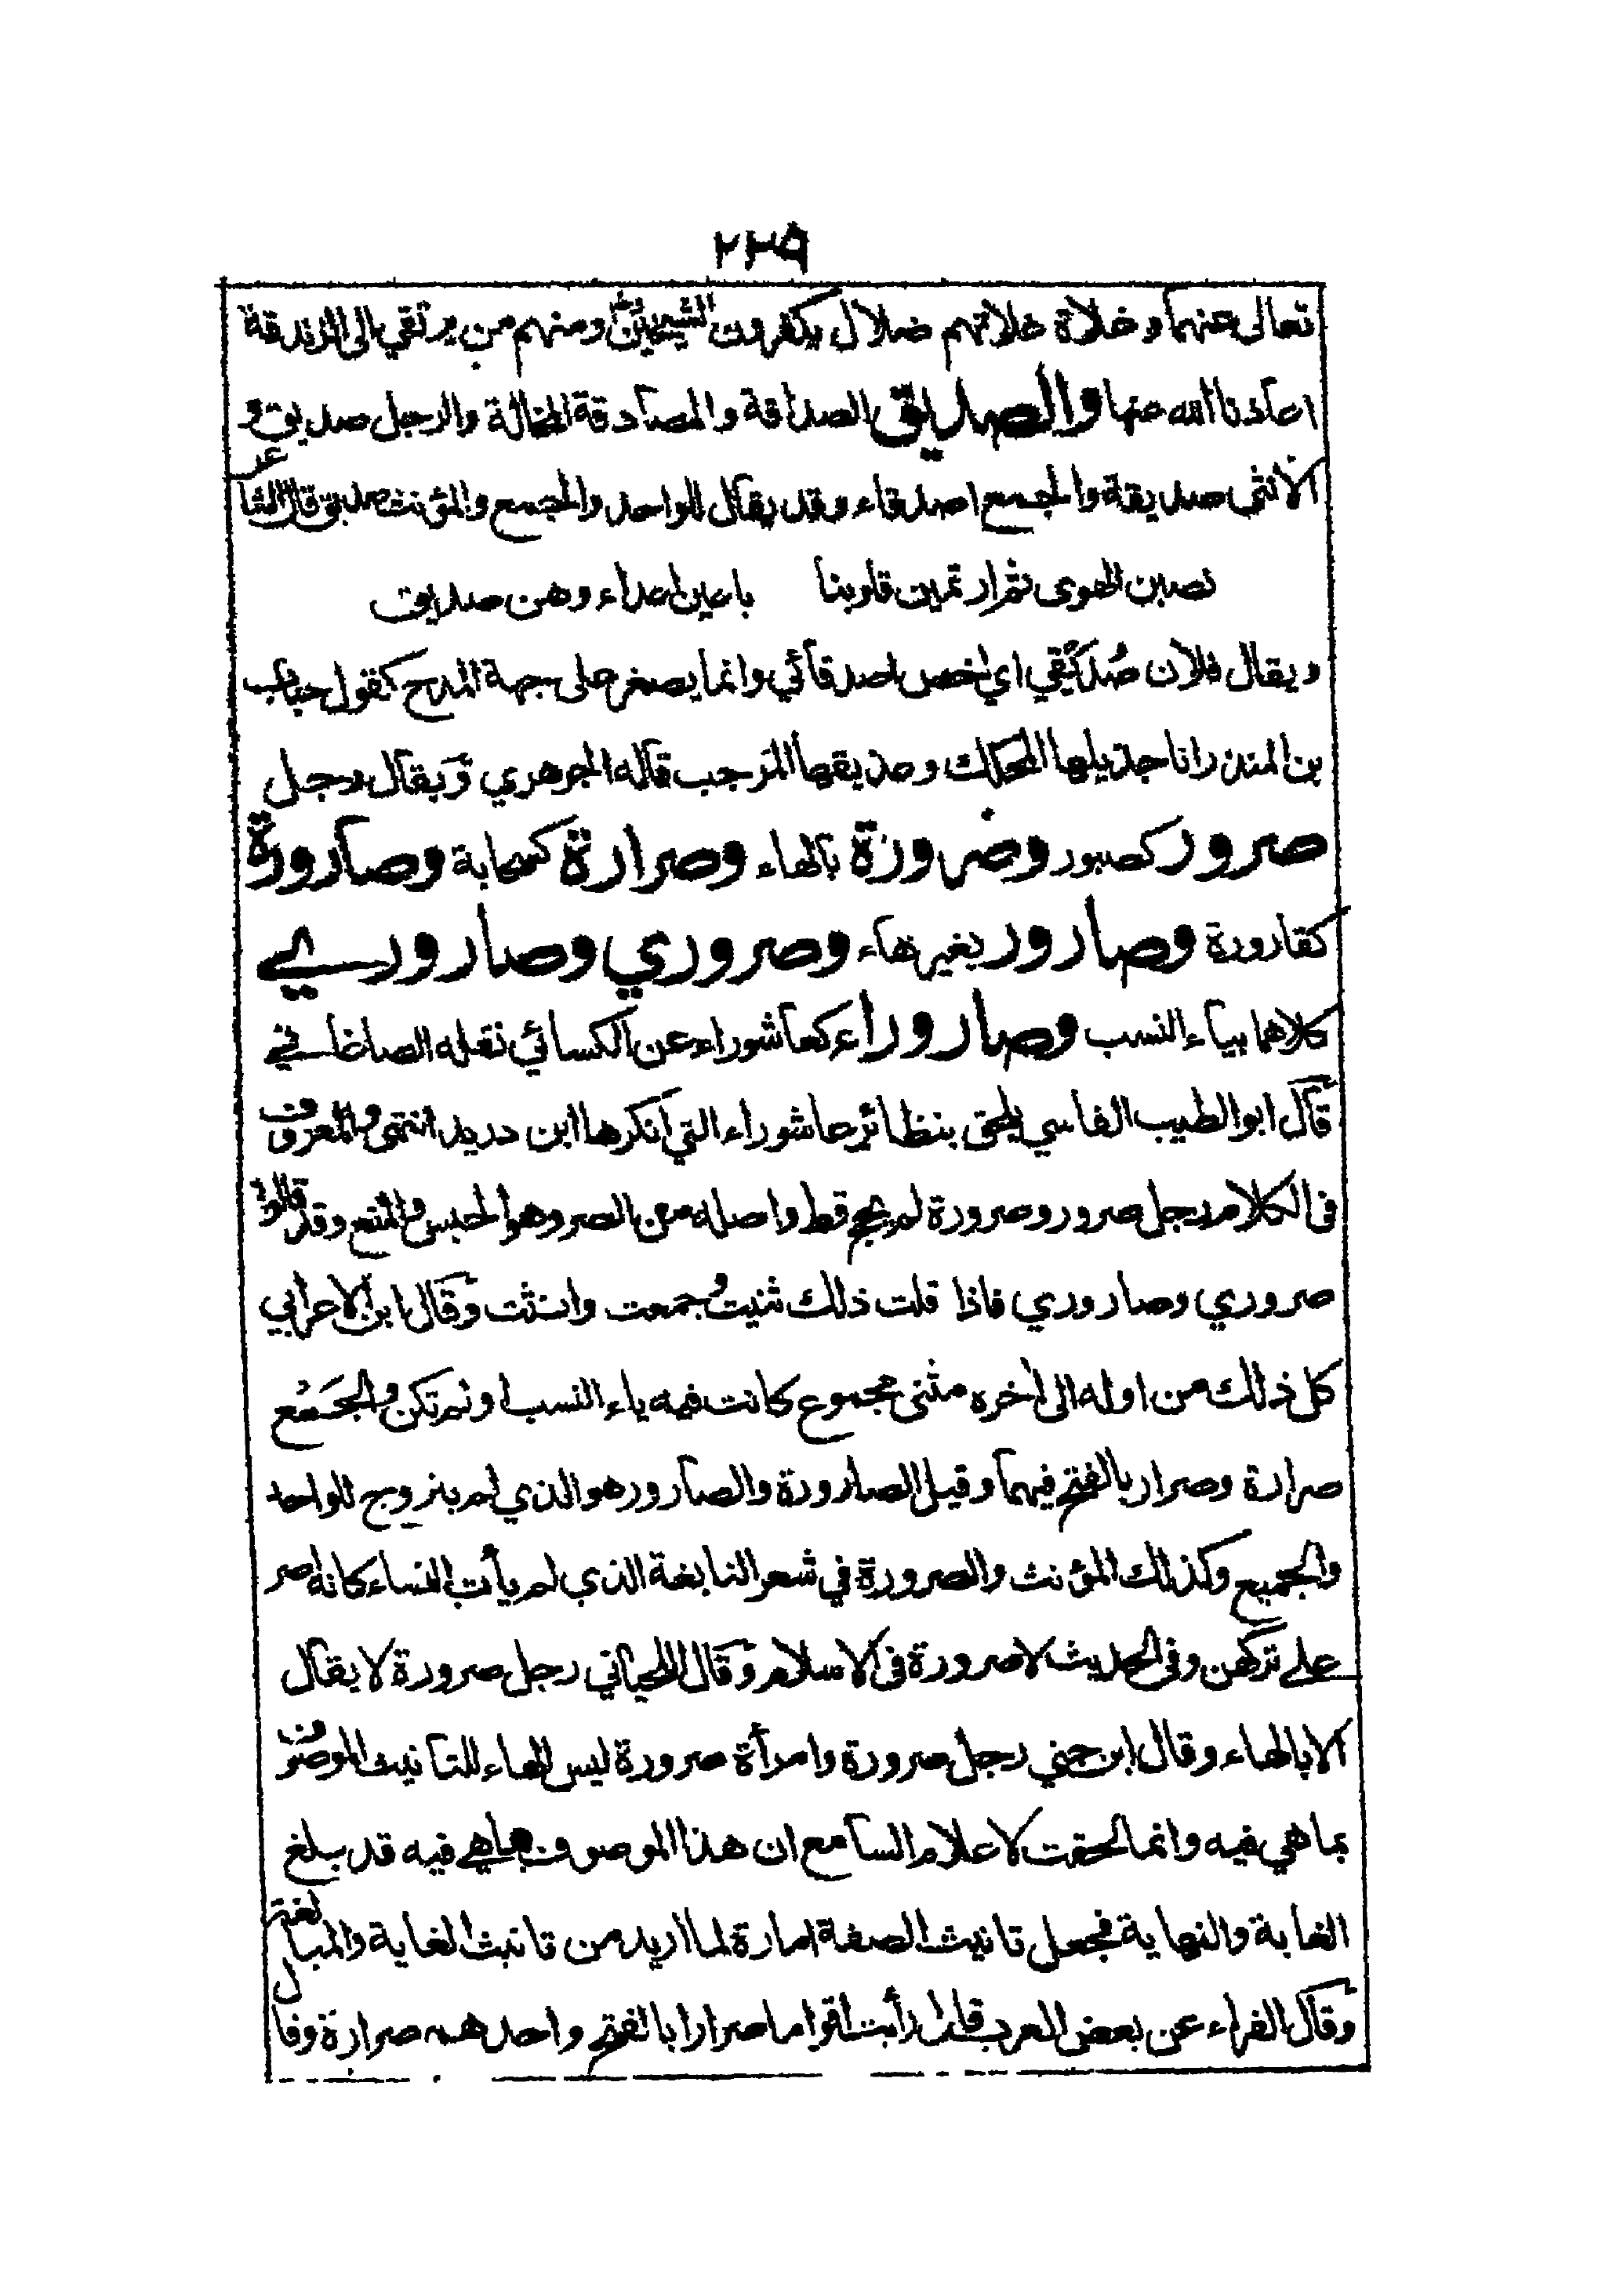 ٢٣٩
تعالى عنهما وغلاة غلاتهم ضلال يكفرون الشيخين ومنهم من يرتقي الى الزندقة
اعاذنا الله عنها والصديق الصداقة والمصادقة المخالة والرجل صديق و
الانثى صديقة والجمع اصدقاء وقد يقال للواحد والجمع والمؤنث صديق قال الشاعر
نصبن الهوى ثم ارتمين قلوبنا باعين اعداء وهن صديق
ويقال فلان صُدَيِّقي اي اخص اصدقائي وانما يصغر على جهة المدح كقول حباب
بن المنذر انا جذيلها المحكك وعذيقها المرجب قاله الجوهري وَيقال رجل
صرور كصبور وضرورة بالهاء وصرارة كسحابة وصارورة
كقارورة وصارور بغير هاء وصروري وصاروري
كلاهما بياء النسب وصاروراء كعاشوراء عن الكسائي نقله الصاغاني
قال ابو الطيب الفاسي يلحق بنظائر عاشوراء التي انكرها ابن دريد انتهى والمعروف
فى الكلام رجل صرور وصرورة لم يحج قط واصله من الصر وهو الحبس والمنع وقد قالوا
صروري وصاروري فاذا قلت ذلك ثنيت وجمعت وانثت وَقال ابن الاعرابي
كل ذلك من اوله الى اخره مثنى مجموع كانت فيه ياء النسب او لم تكن والجَمْع
صرارة وصرار بالفتح فيهما وقيل الصارورة والصارور هو الذي لم يتزوج للواحد
والجميع وكذلك المؤنث والصرورة في شعر النابغة الذي لم يأت النساء كانه اصر
على تركهن وفى الحديث لا صرورة فى الاسلام وَقال اللحياني رجل صرورة لا يقال
الا بالهاء وقال ابن جني رجل صرورة وامرأة صرورة ليس الهاء للتانيث الموصوف
بما هي فيه وانما لحقت لاعلام السامع ان هذا الموصوف بما هي فيه قد بلغ
الغاية والنهاية فجعل تانيث الصفة امارة لما اريد من تانيث الغاية والمبالغة
وَقال الفراء عن بعض العرب قال رأيت اقواما صرارا بالفتح واحدهم صرارة وقال